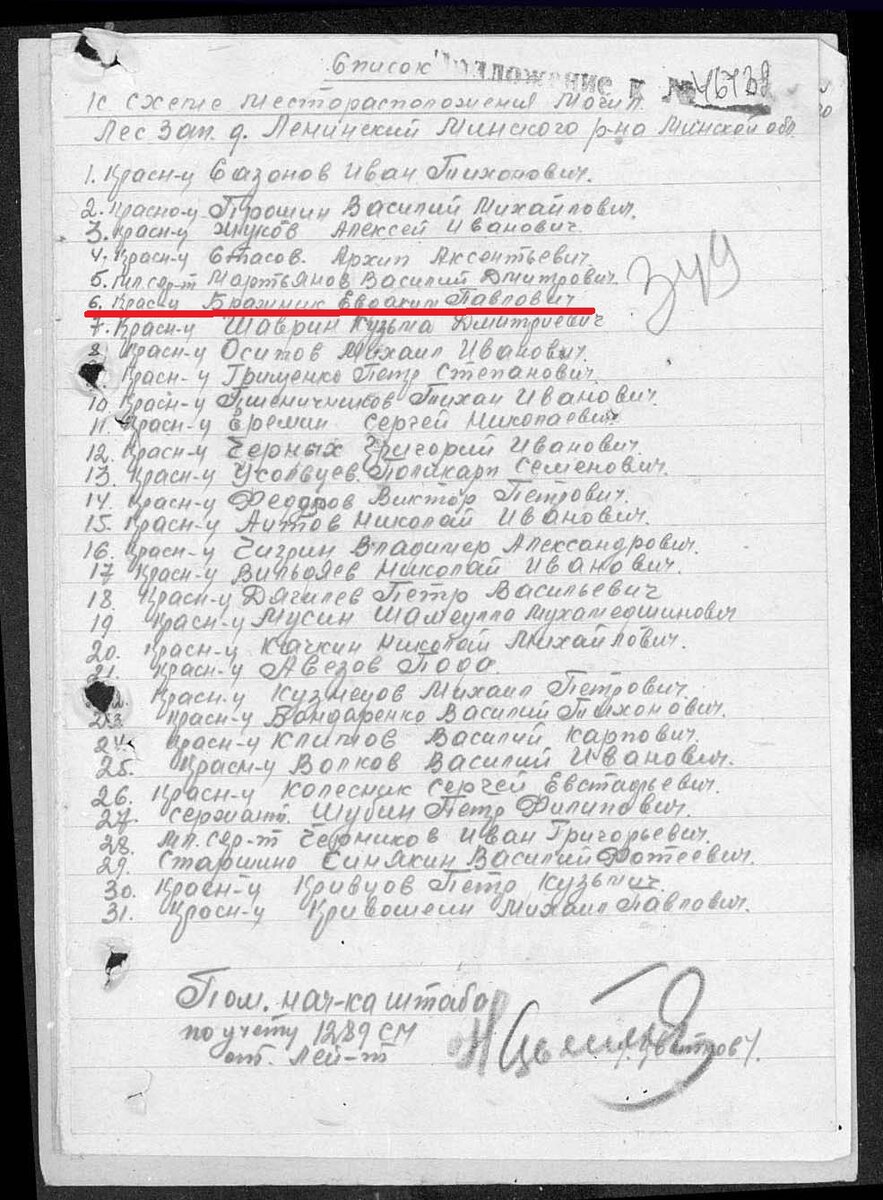 Список
Приложение к № 46739
к схеме месторасположения могил
Лес Зап. д. Ленинский Минского р-на Минской обл
1. Красн-ц Сазонов Иван Тихонович.
2. Красно-ц Прошин Василий Михайлович.
3. Красн-ц Жуков Алексей Иванович
4. Красн-ц Стасов. Архип Аксентьевич.
5. Мл сер-т Мартьянов Василий Дмитрович.
6. Красн-ц Бражник Евдаким Павлович
7. Красн-ц Шаврин Кузьма Дмитриевич
8. Красн-ц Оситов Михаил Иванович.
Красн-ц Грищенко Петр Степанович.
10. Красн-ц Пшеничников Тихан Иванович.
11. Красн-ц Еремин Сергей Николаевич
12. Красн-ц Черных Григорий Иванович.
13. Красн-ц Усольцев Поликарп Семенович.
14. Красн-ц Федоров Виктор Петрович.
15. Красн-ц Аитов Николай Иванович.
16. Красн-ц Чигрин Владимер Александрович.
17 Красн-ц Николай Иванович.
18. Красн-ц Дягилев Петр Васильевич
19 Красн-ц Мусин
20. Красн-ц Качкин Николай Михайлович.
21. Красн-ц Авезов
Красн-ц Кузмецов Михаил Петрович.
23 Красн-ц Бандаренко Василий Тихонович.
24. Красн-ц Климов Василий Карпович.
25. Красн-ц Волков Василий Иванович.
26. Красн-ц Колесник Сергей Евстафьевич.
27. сержант. Шубин Петр Филипович.
28. мл. сер-т Черников Иван Григорьевич.
29. Старшино Синякин Василий Фотеевич.
30. Красн-ц Кривцов Петр Кузьмич.
31. Красн-ц Кривошеин Михаил Павлович.
349
Пом. нач-ка штаба
по учету 1289 СП
ст. Лей-т